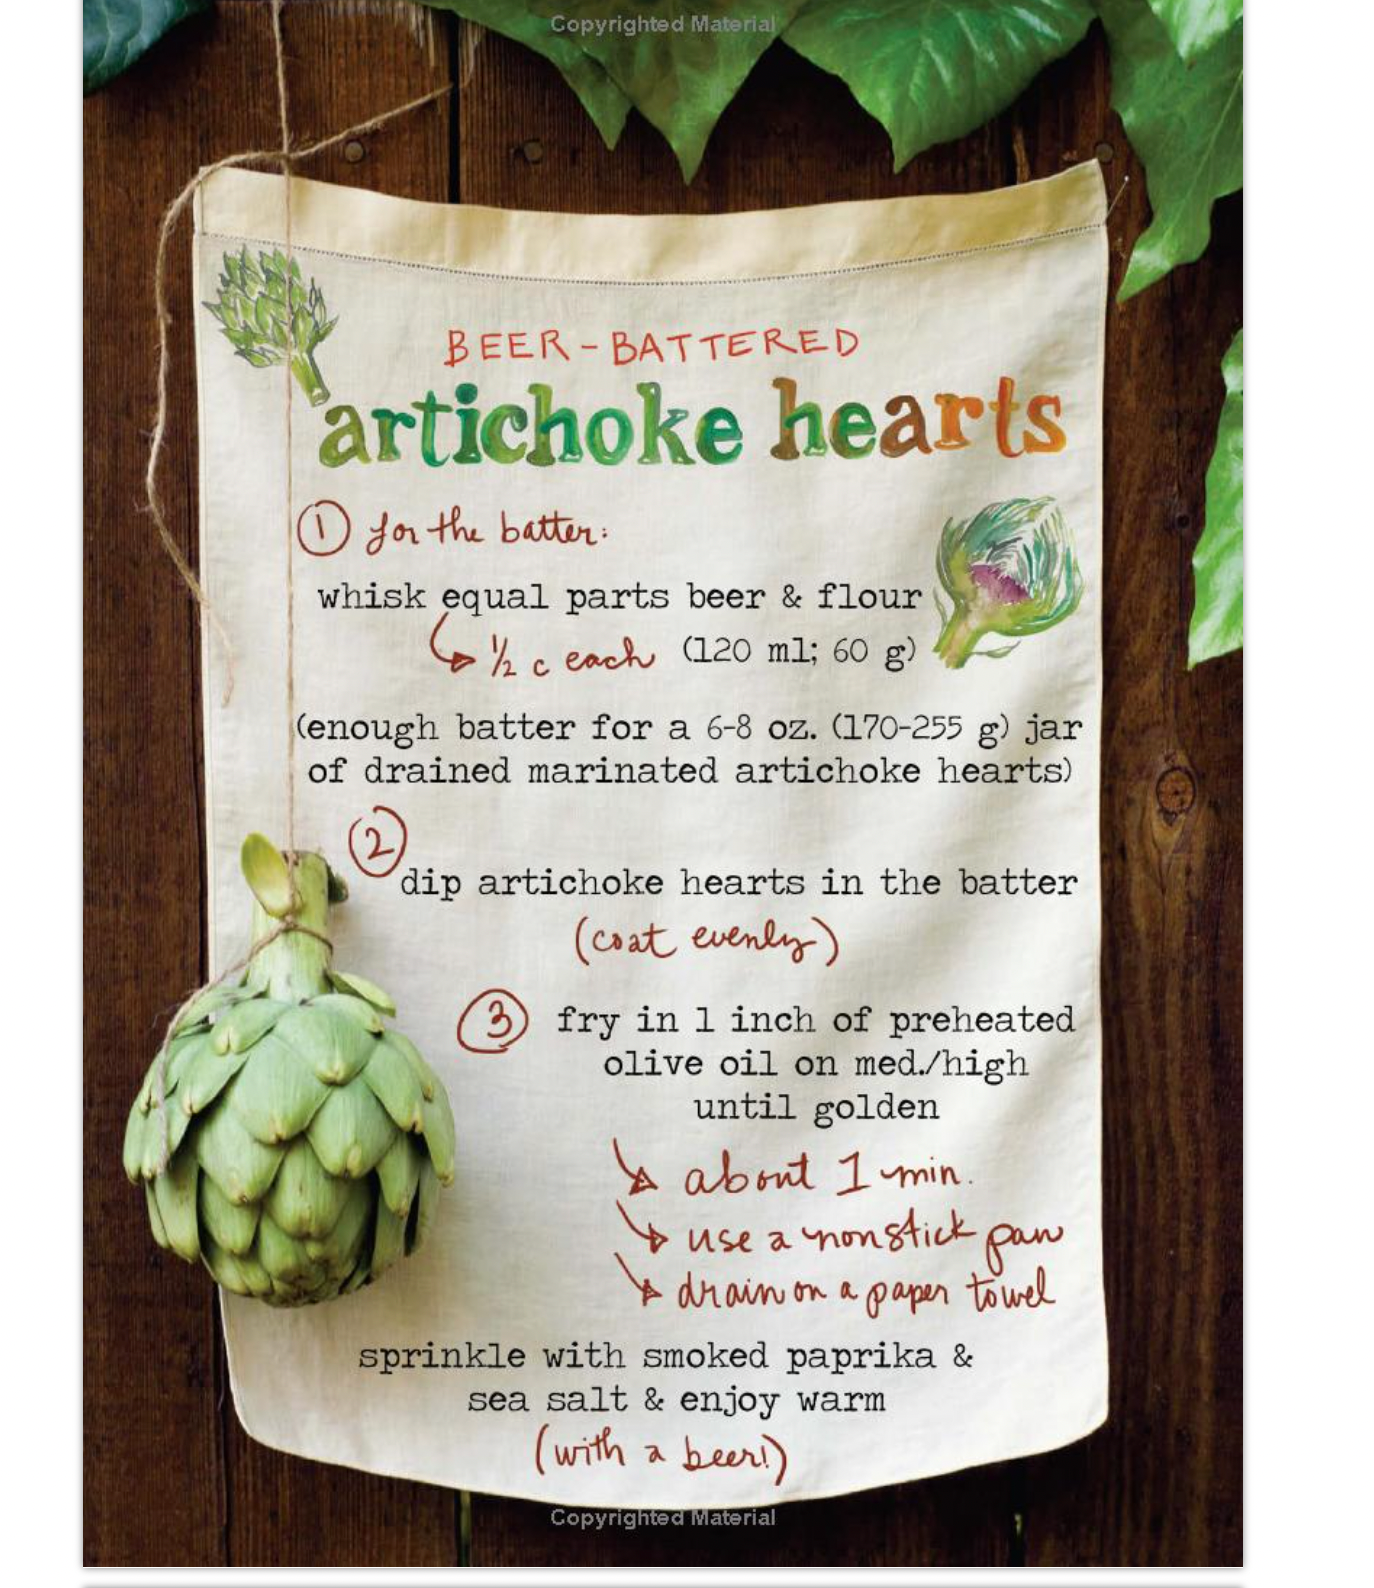 Copyrighted Material
BEER-BATTERED
artichoke hearts
1 for the batter:
whisk equal parts beer & flour
½ c each (120 ml; 60 g)
(enough batter for a 6-8 oz. (170-255 g) jar
of drained marinated artichoke hearts)
2
dip artichoke hearts in the batter
(coat evenly)
3 fry in 1 inch of preheated
olive oil on med./high
until golden
about 1 min.
use a nonstick pan
drain on a paper towel
sprinkle with smoked paprika &
sea salt & enjoy warm
(with a beer!)
Copyrighted Material